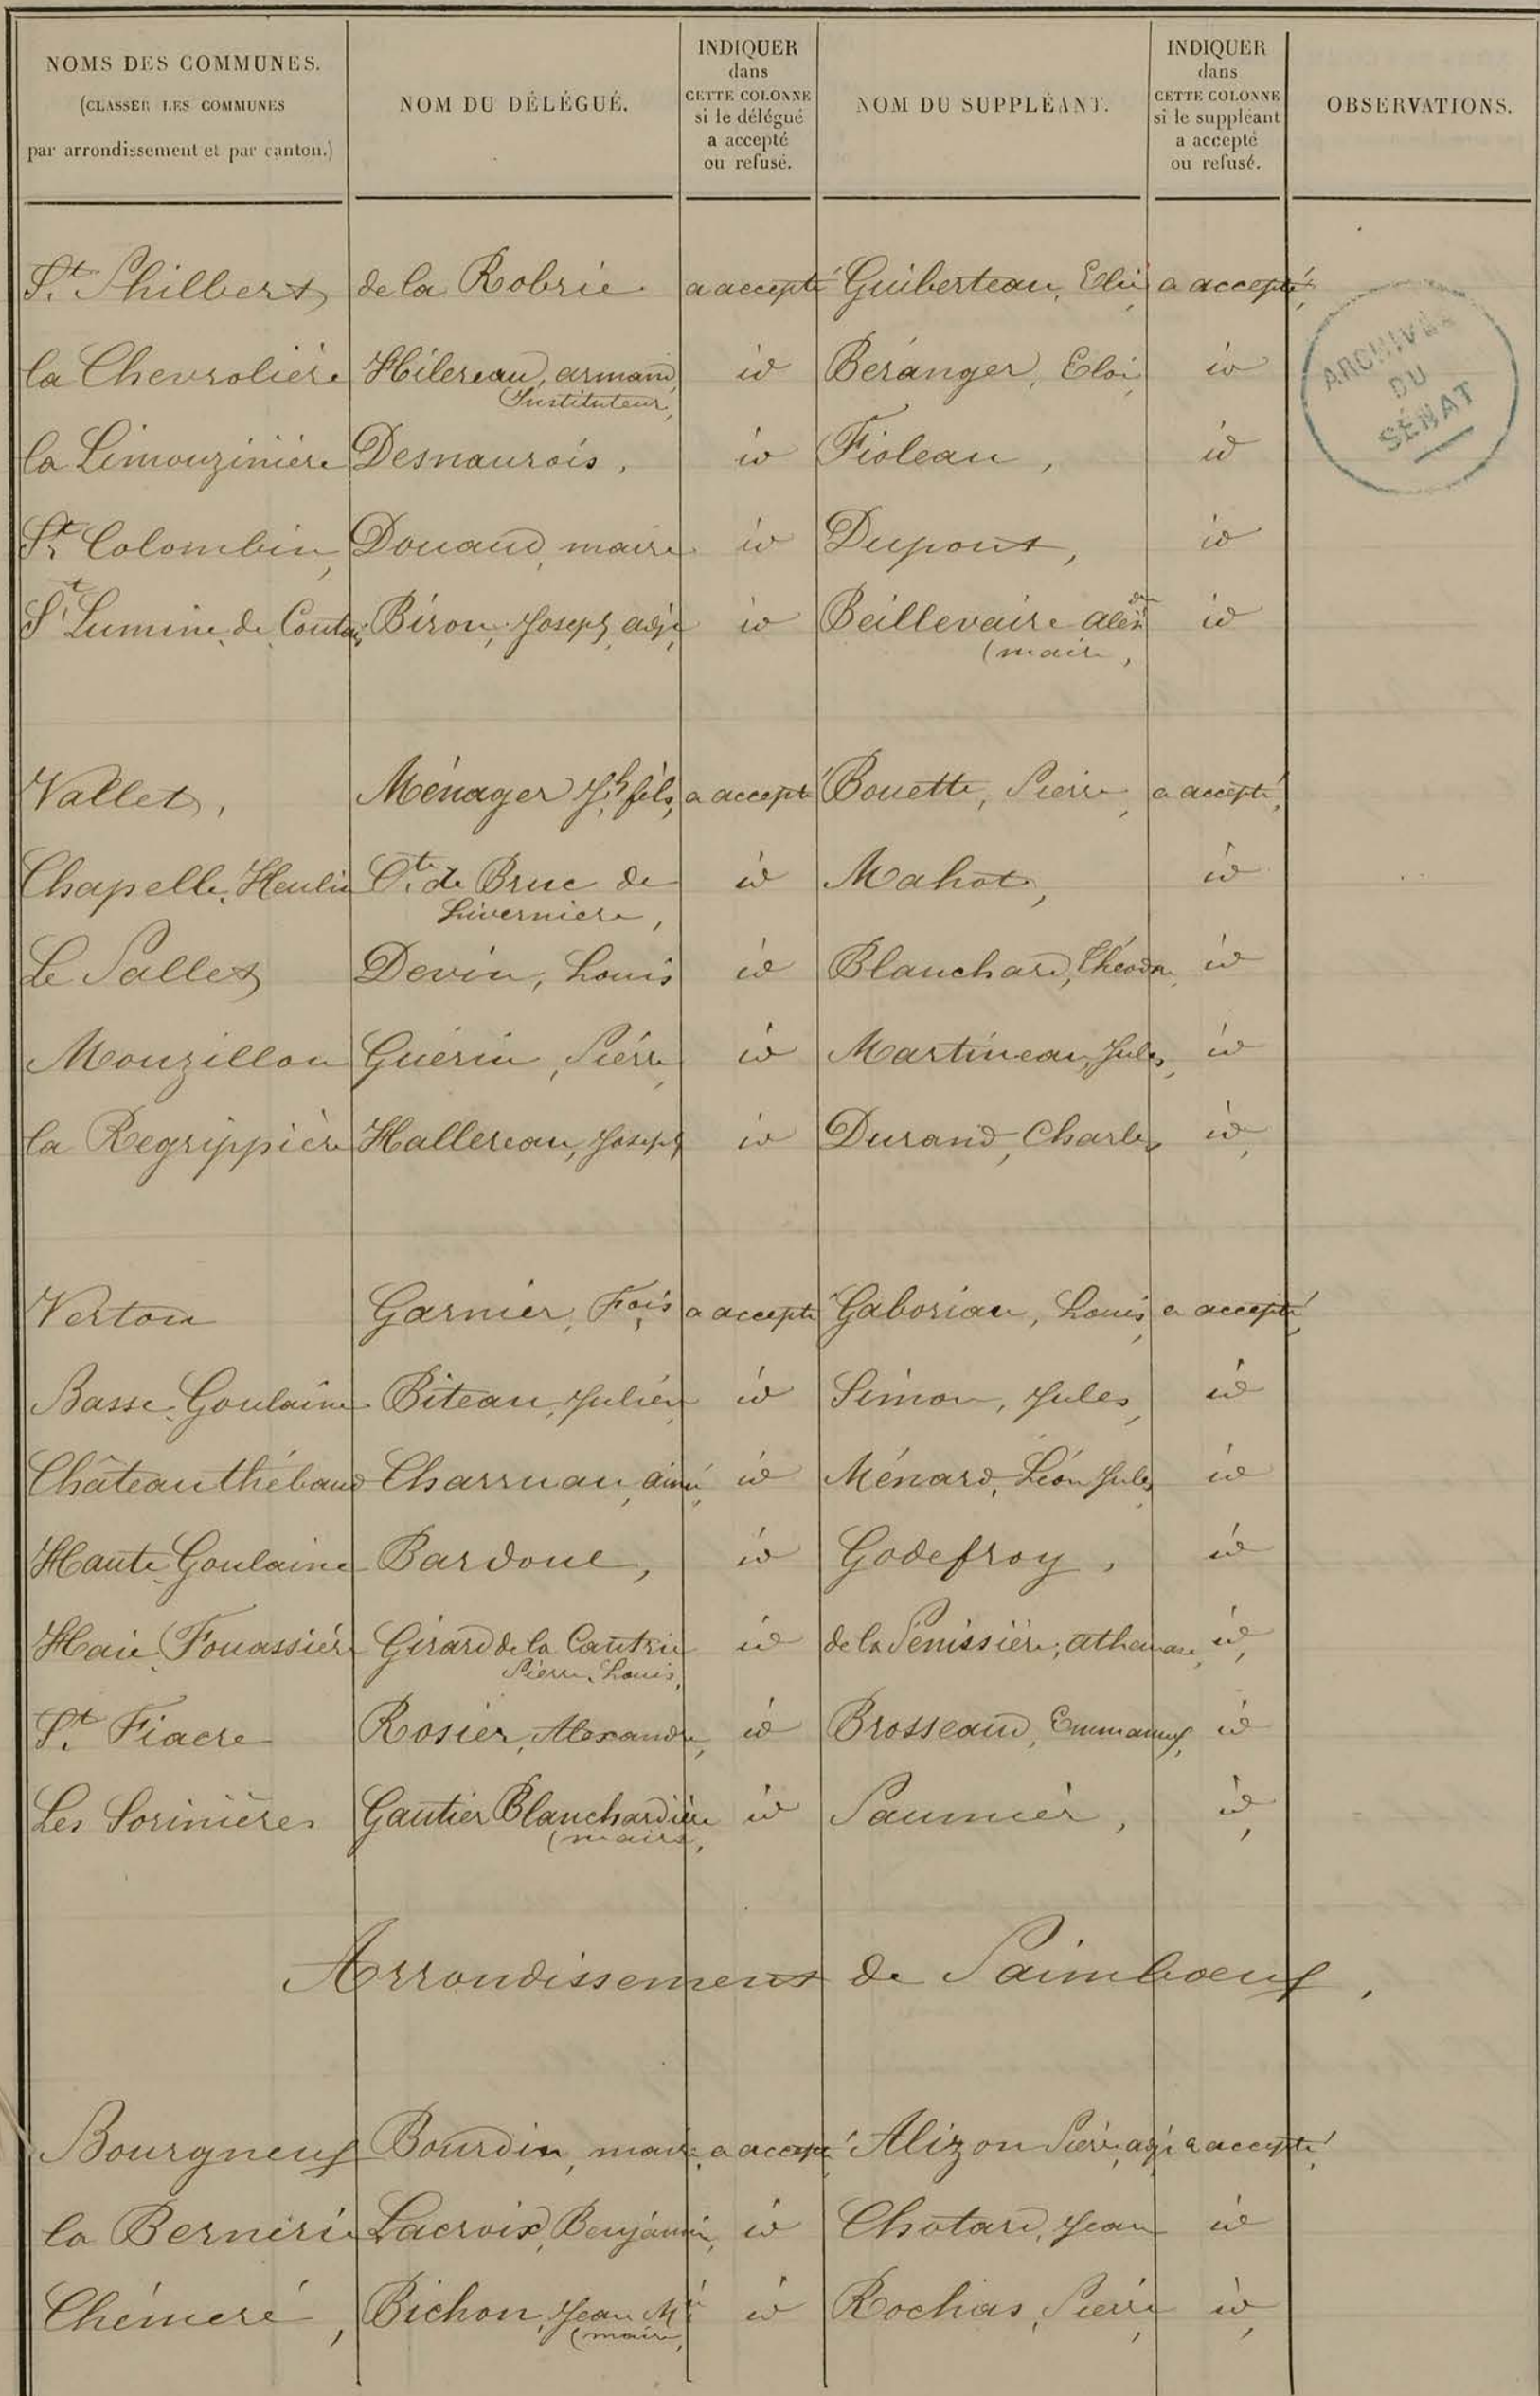 NOMS DES COMMUNES.
(CLASSER LES COMMUNES
par arrondissement et par canton.)
NOM DU DÉLÉGUÉ.
INDIQUER
dans
CETTE COLONNE
si le délégué
a accepté
ou refusé.
NOM DU SUPPLÉANT.
INDIQUER
dans
CETTE COLONNE
si le suppléant
a accepté
ou refusé.
OBSERVATIONS.
St Philbert de la Robrie a accepté Guiberteau, Elie a accepté,
la Chevrolière Hilereau, armand, id Béranger, Eloi, id
Instituteur,
la Limouzinière Desnaurois, id Fioleau, id
St Colombin, Douaud, maire id Dupont, id
St Lumine de Coutais, Biron, Joseph, adjt id Beillevaire Alexdre id
(maire,
ARCHIVES
DU
SÉNAT
Vallet, Ménager Jh fils, a accepté Bouette, Pierre, a accepté,
Chapelle Heulin Cte de Bruc de id Mahot, id
Livernière,
Le Pallet Devin, Louis id Blanchard, Théodre, id
Mouzillon Guérin, Pierre, id Martineau, Jules, id
la Regrippière Hallereau, Joseph id Durand, Charles id,
Vertou Garnier, Fçois, a accepté Gaboriau, Louis, a accepté,
Basse Goulaine Biteau, Julien id Simon, Jules, id
Châteauthébaud Charruau, aimé, id Ménard, Léon Jules id
Haute Goulaine Bardoul, id Godefroy, id
Haie Fouassière Girard de la Cantrie id de la Pénissière, athanase, id,
Pierre Louis,
St Fiacre Rosier, Alexandre, id Brosseaud, Emmanuel, id
Les Sorinières Gautier Blanchardière id Saumier, id,
(maire,
Arrondissement de Paimboeuf,
Bourgneuf Bourdin, maire, a accepté Alizon Pierre, adjt a accepté,
la Bernerie Lacroix, Benjamin, id Chotard, Jean id
Chéméré, Bichon, Jean Mie id Rochas, Pierre, id,
(maire,